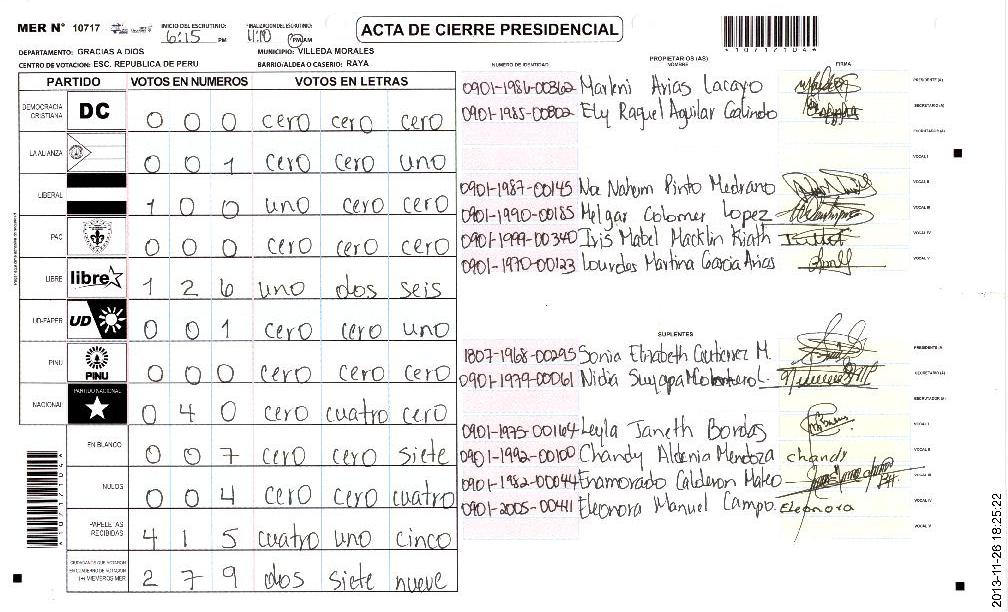 MER N° 10717
INICIO DEL ESCRUTINIO: 6:15 PM
FINALIZACION DEL ESCRUTINIO: PM AM
ACTA DE CIERRE PRESIDENCIAL
*10717104*
DEPARTAMENTO: GRACIAS A DIOS
MUNICIPIO: VILLEDA MORALES
CENTRO DE VOTACION: ESC. REPUBLICA DE PERU
BARRIO/ALDEA O CASERIO: RAYA
PARTIDO VOTOS EN NUMEROS VOTOS EN LETRAS
DEMOCRACIA CRISTIANA DC 0 0 0 cero cero cero
LA ALIANZA 0 0 1 cero cero uno
LIBERAL 1 0 0 uno cero cero
PAC 0 0 0 cero cero cero
LIBRE libre 1 2 6 uno dos seis
UD-FAPER UD 0 0 1 cero cero uno
PINU PINU 0 0 0 cero cero cero
NACIONAL PARTIDO NACIONAL 0 4 0 cero cuatro cero
EN BLANCO 0 0 7 cero cero siete
NULOS 0 0 4 cero cero cuatro
PAPELETAS RECIBIDAS 4 1 5 cuatro uno cinco
CIUDADANOS QUE VOTARON EN CUADERNO DE VOTACION (+) MIEMBROS MER 2 7 9 dos siete nueve
PROPIETARIOS (AS)
NUMERO DE IDENTIDAD NOMBRE FIRMA
0901-1986-00362 Marleni Arias Lacayo PRESIDENTE (A)
0901-1985-00802 Ely Raquel Aguilar Galindo SECRETARIO (A)
ESCRUTADOR (A)
VOCAL I
0901-1987-00145 Noe Nahum Pinto Medrano VOCAL II
0901-1990-00185 Melgar Colomer Lopez VOCAL III
0901-1999-00340 Iris Mabel Macklin Kiath VOCAL IV
0901-1970-00123 Lourdes Martina Garcia Arias VOCAL V
SUPLENTES
1807-1968-00295 Sonia Elizabeth Gutierrez M. PRESIDENTE (A)
0901-1979-00061 Nidia Suyapa L. SECRETARIO (A)
ESCRUTADOR (A)
0901-1975-00164 Leyla Janeth Bordas VOCAL I
0901-1992-00100 Chandy Aldenia Mendoza chandy VOCAL II
0901-1982-00044 Enamorado Calderon Mateo VOCAL III
0901-2005-00441 Eleonora Manuel Campo. Eleonora VOCAL IV
VOCAL V
*10717104*
2013-11-26 18:25:22